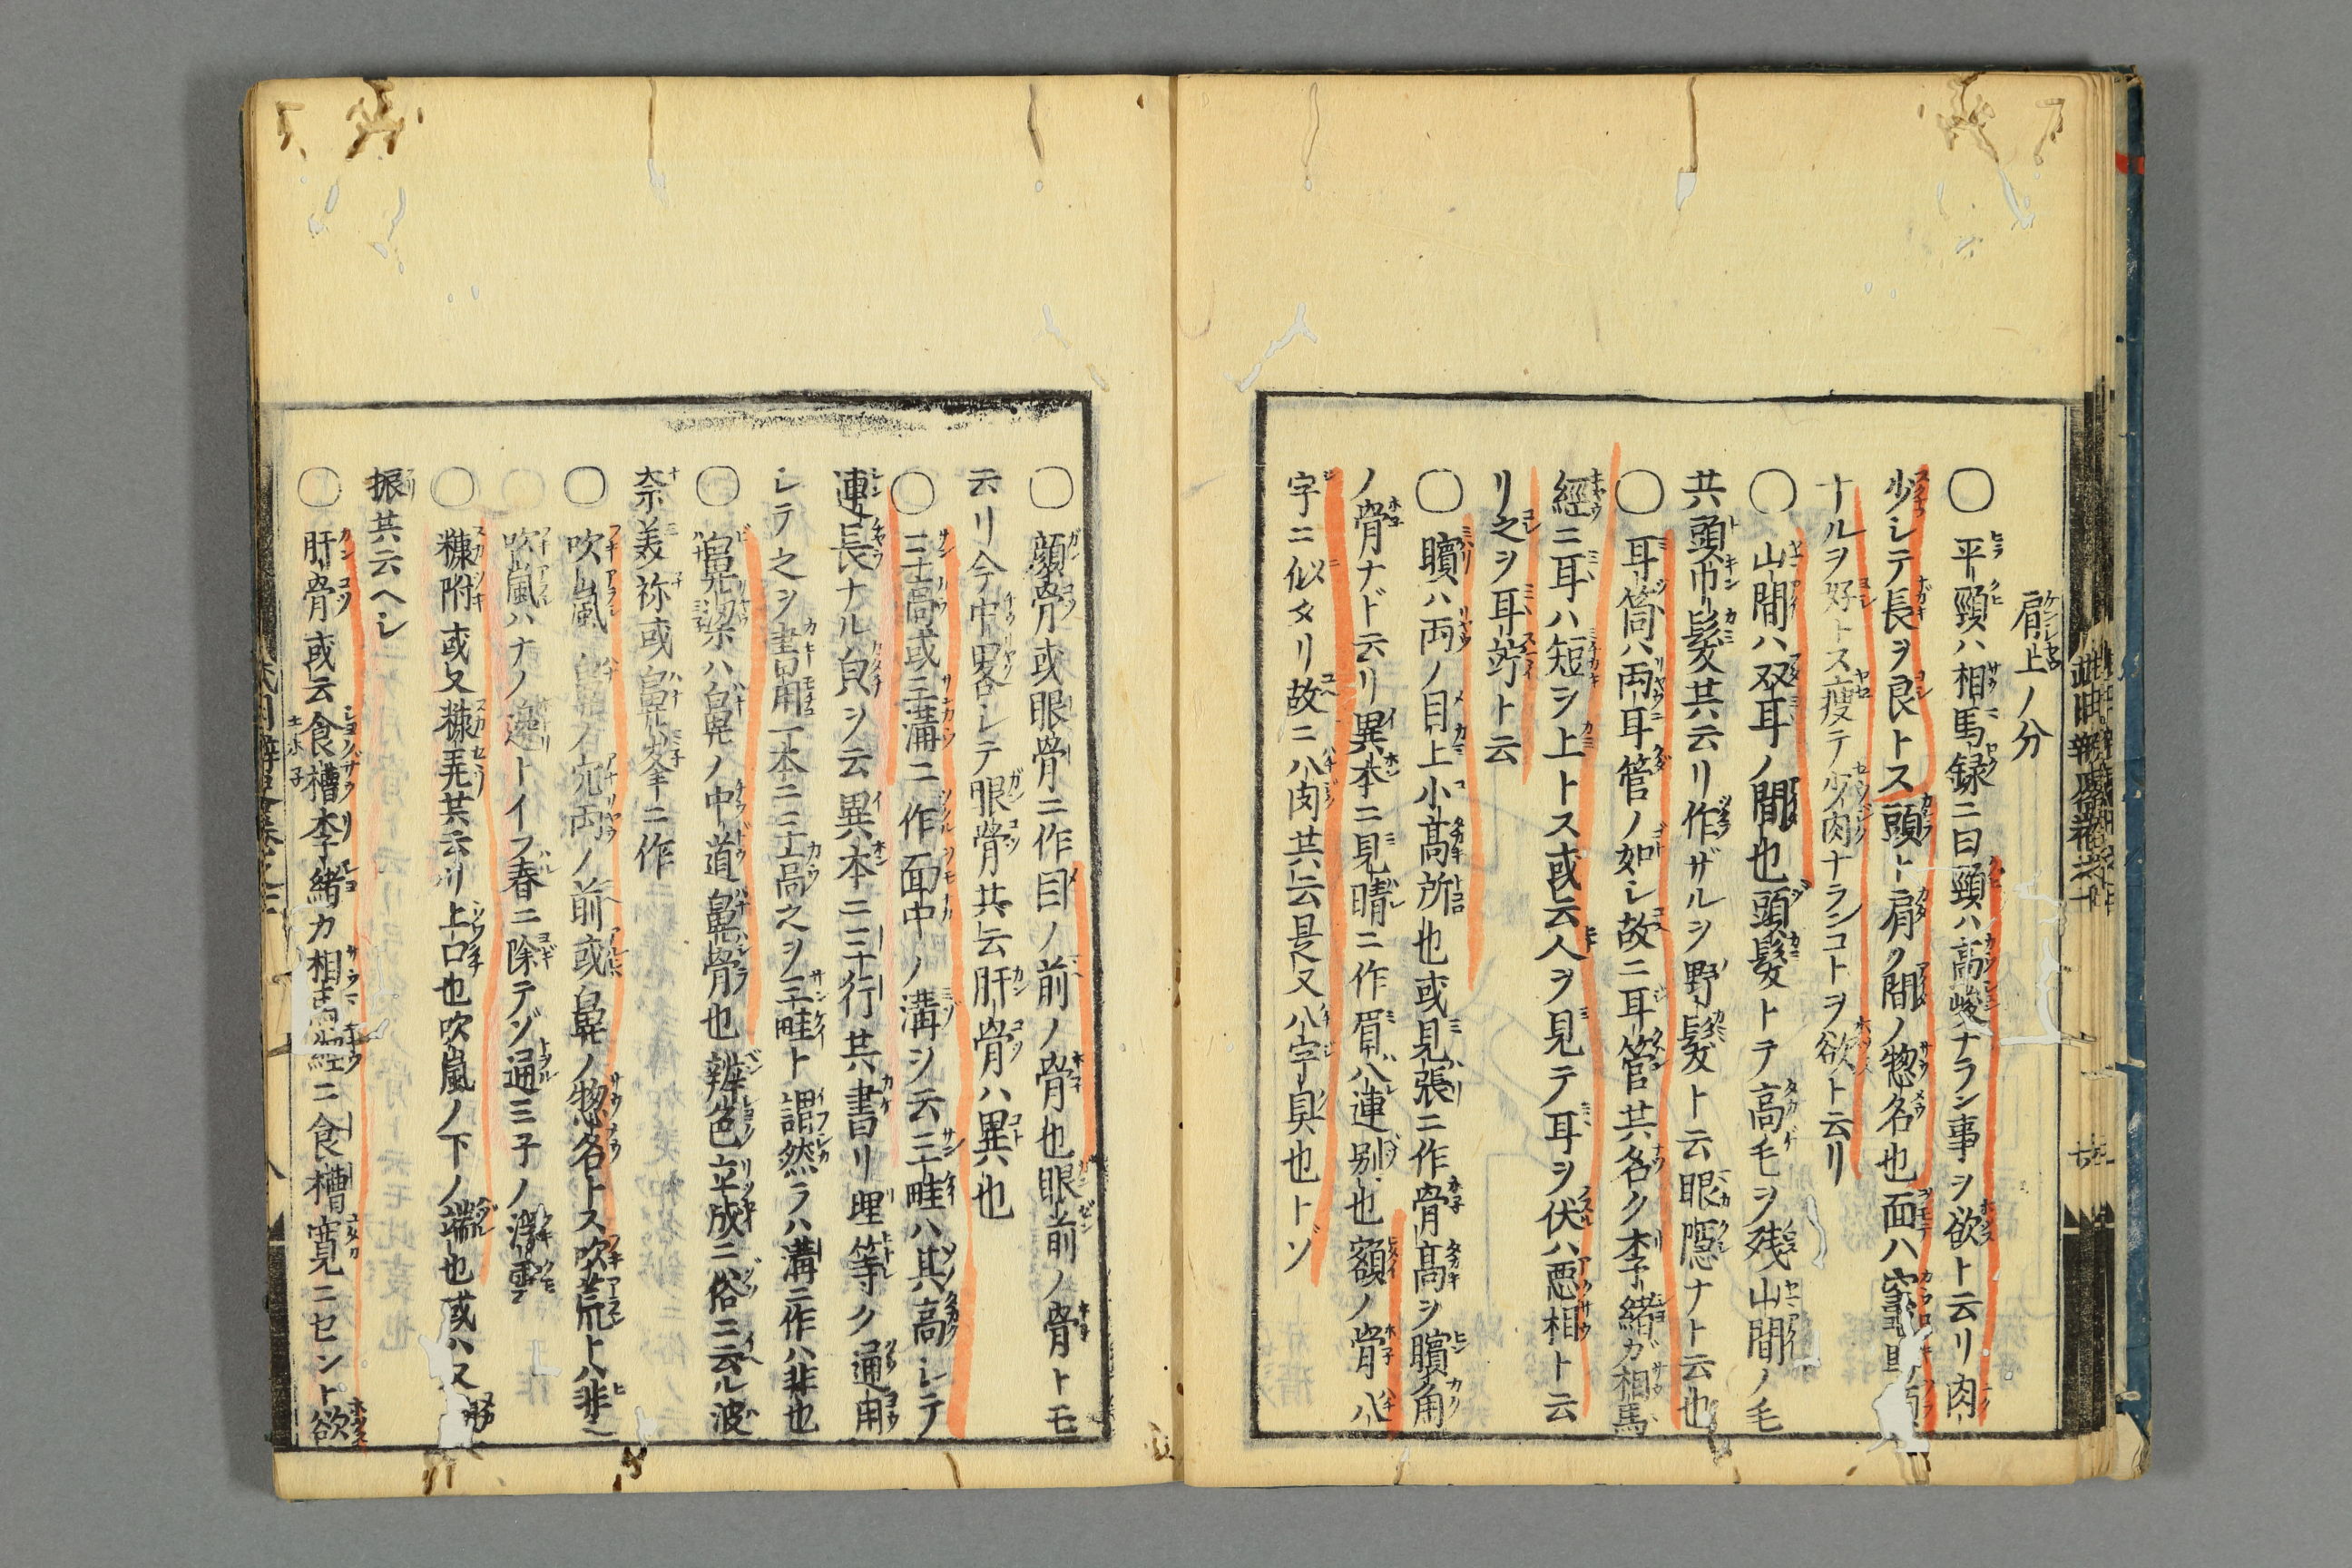 肩上ノ分
〇平頸ハ相馬録ニ曰頸ハ高峻ナラン事ヲ欲ト云リ肉
少シテ長ヲ良トス頭ト肩ク間ノ惣名也面ハ
ナルヲ好トス痩テ少肉ナランコトヲ欲ト云リ
〇山間ハ双耳ノ間也頭髪トテ高毛ヲ残山間ノ毛
共頭巾髪共云リ作ザルヲ野髪ト云眼隠ナト云也
〇耳筒ハ両耳管ノ如シ故ニ耳管共名ク李緒ガ相馬
經ニ耳ハ短ヲ上トス或云人ヲ見テ耳ヲ伏ハ悪相ト云
リ之ヲ耳竚ト云
〇矉ハ両ノ目上小高所也或見張ニ作骨高ヲ矉角
ノ骨ナド云リ異本ニ見晴ニ作眉ハ連別也額ノ骨八
字ニ似タリ故ニ八肉共云是又八字臭也トゾ
〇顔骨或眼骨ニ作目ノ前ノ骨也眼前ノ骨トモ
云リ今中畧シテ眼骨共云肝骨ハ異也
〇三高或三溝ニ作面中ノ溝ヲ云三畦ハ其高シテ
連長ナル皃ヲ云異本ニ三行共書リ埋等ク通用
シテ之ヲ書用一本ニ三高之ヲ三畦ト謂然ラハ溝ニ作ハ非也
〇鼻梁ハ鼻ノ中道鼻骨也辨色立成ニ俗ニ云ル波
奈美祢或鼻峯ニ作
〇吹嵐鼻ノ右宍両ノ前或鼻ノ惣名トス吹荒トハ非之
〇吹嵐ハナノ邊トイフ春ニ除テゾ通三子ノ浮雲
〇糠附或又糠乕共云リ上口也吹嵐ノ下ノ端也或ハ又
振共云ヘシ
〇肝骨或云食槽李緒カ相馬經ニ食槽寛ニセント欲